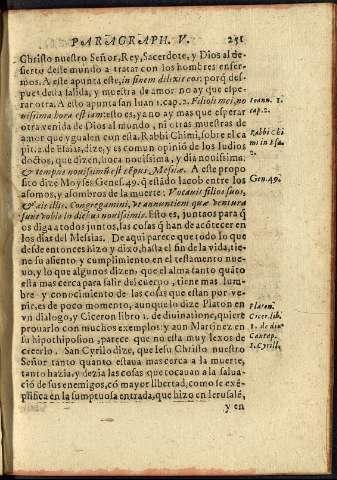 PARAGRAPH. V. 251
Christo nuestro Señor, Rey, Sacerdote, y Dios al de-
sierto deste mundo a tratar con los hombres enfer-
mos. A este apunta este, in finem dilixit eos: porq̃ des-
pues desta salida, y muestra de amor no ay que espe-
rar otra. A esto apunta san Iuan 1. cap. 2. Filioli mei, no
uissima hora est iam: esto es, ya no ay mas que esperar
otra venida de Dios al mundo, ni otras muestras de
amor que ygualen con esta. Rabbi Chimi, sobre el ca
pit. 2. de Esaias, dize, y es comun opinió de los Iudios
doctos, que dizen, hora nouissima, y dia nouissima:
& tempus nouissimũ est tẽpus Messiæ. A este propo-
sito dize Moyses Genes. 49. q̃ estãdo Iacob entre los
asomos, y asombros de la muerte: Vocauit filios suos,
& ait illis. Congregamini, vt annuntiem quæ ventura
sunt vobis in diebus nouissimis. Esto es, juntaos para q̃
os diga a todos juntos, las cosas q̃ han de acótecer en
los dias del Mesias. De aqui parece que todo lo que
desde entonces hizo y dixo, hasta el fin de la vida, tie-
ne su asiento y cumplimiento en el testamento nue-
uo, y lo que algunos dizen: que el alma tanto quãto
esta mas cerca para salir del cuerpo, tiene mas lum-
bre y conocimiento de las cosas que estan por ve-
nir, es de poco momento, aunque lo dize Platon en
vn dialogo, y Ciceron libro 1. de diuinatione, quiere
prouarlo con muchos exemplos: y aun Martinez en
su hipothiposion, parece que no esta muy lexos de
creerlo. San Cyrilo dize, que Iesu Christo nuestro
Señor tanto quanto estaua mas cerca a la muerte,
tanto hazia, y dezia las cosas que tocauan a la salua-
ció de sus enemigos, có mayor libertad, como se exẽ-
plifica en la sumptuosa entrada, que hizo en Ierusalẽ,
y en
Ioann. 1.
cap. 2.
Rabbi Chi
mi in Esa.
2.
Gen. 49.
Platon.
Cicer. lib.
1. de diu
S. Cyrill.